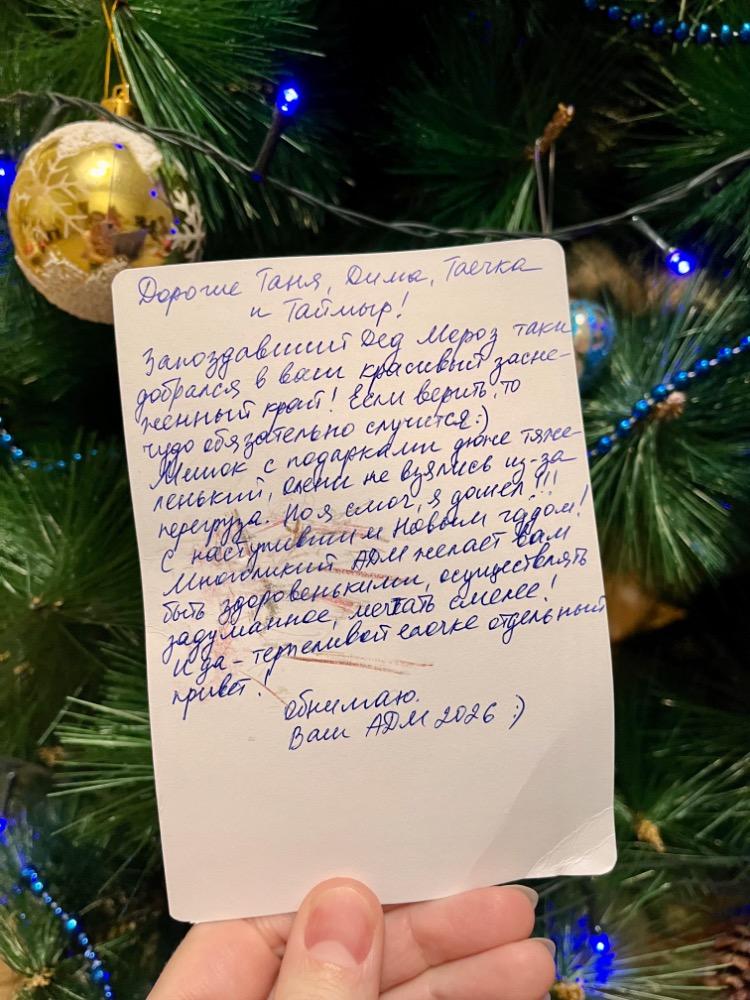 Дорогие Таня, Дима, Таечка
и Таймыр!
Запоздавший Дед Мороз таки
добрался в ваш красивый засне-
женный край! Если верить, то
чудо обязательно случится:)
Мешок с подарками дюже тяже-
ленький, олени не взялись из-за
перегруза. Но я смог, я дошел!!!
С наступившим Новым годом!
Многоликий АДМ желает вам
быть здоровенькими, осуществлять
задуманное, мечтать смелее!
И да - терпеливой елочке отдельный
привет!
Обнимаю.
Ваш АДМ 2026 :)